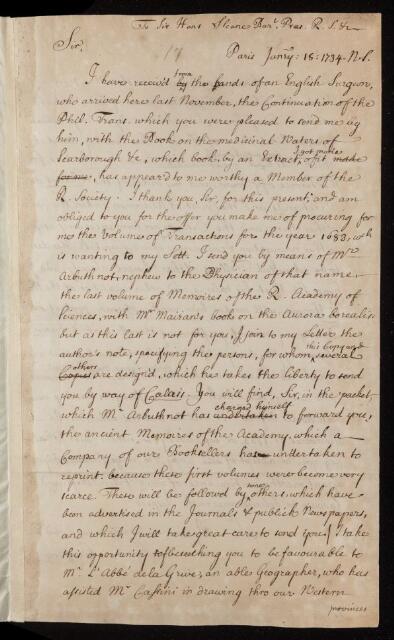 To Sir Hans Sloane Bart. Pres. R. S. &c
Sir,
Paris Janry. 18: 1734 N.S.
I have receiv'd from
by the hands of an English Surgeon,
who arrived here last November, the Continuation of the
Phil. Trans. which you were pleased to send me by
him, with the Book on the medicinal Waters of
Scarborough &c, which book, by an Extract of it I got made
for me, has appear'd to me worthy a Member of the
R. Society. I thank you, Sir, for this present, and am
obliged to you for the offer you make me of procuring for
me the Volume of Transactions for the year 1683, wch
is wanting to my Sett. I send you by means of Mr
Arbuthnot, nephew to the Physician of that name,
the last volume of Memoires of the R. Academy of
Sciences, with Mr Mairans book on the Aurora borealis;
but as this last is not for you, I join to my Letter the
author's note, specifying the persons, for whom this Copy and several
others
Copies are design'd, which he takes the liberty to send
you by way of Calais. You will find, Sir, in the packet
which Mr. Arbuthnot has charged himself
undertaken to forward you,
the ancient Memoires of the Academy, which a
Company of our Booksellers has undertaken to
reprint, because these first volumes were become very
scarce. These will be followed by some others, which have
been advertised in the Journals & publick Newspapers,
and which I will take great care to send you. I take
this opportunity of beseeching you to be favourable to
Mr. L'Abbé de la Grive, an able Geographer, who has
assisted Mr Cassini in drawing thro our Western
provinces